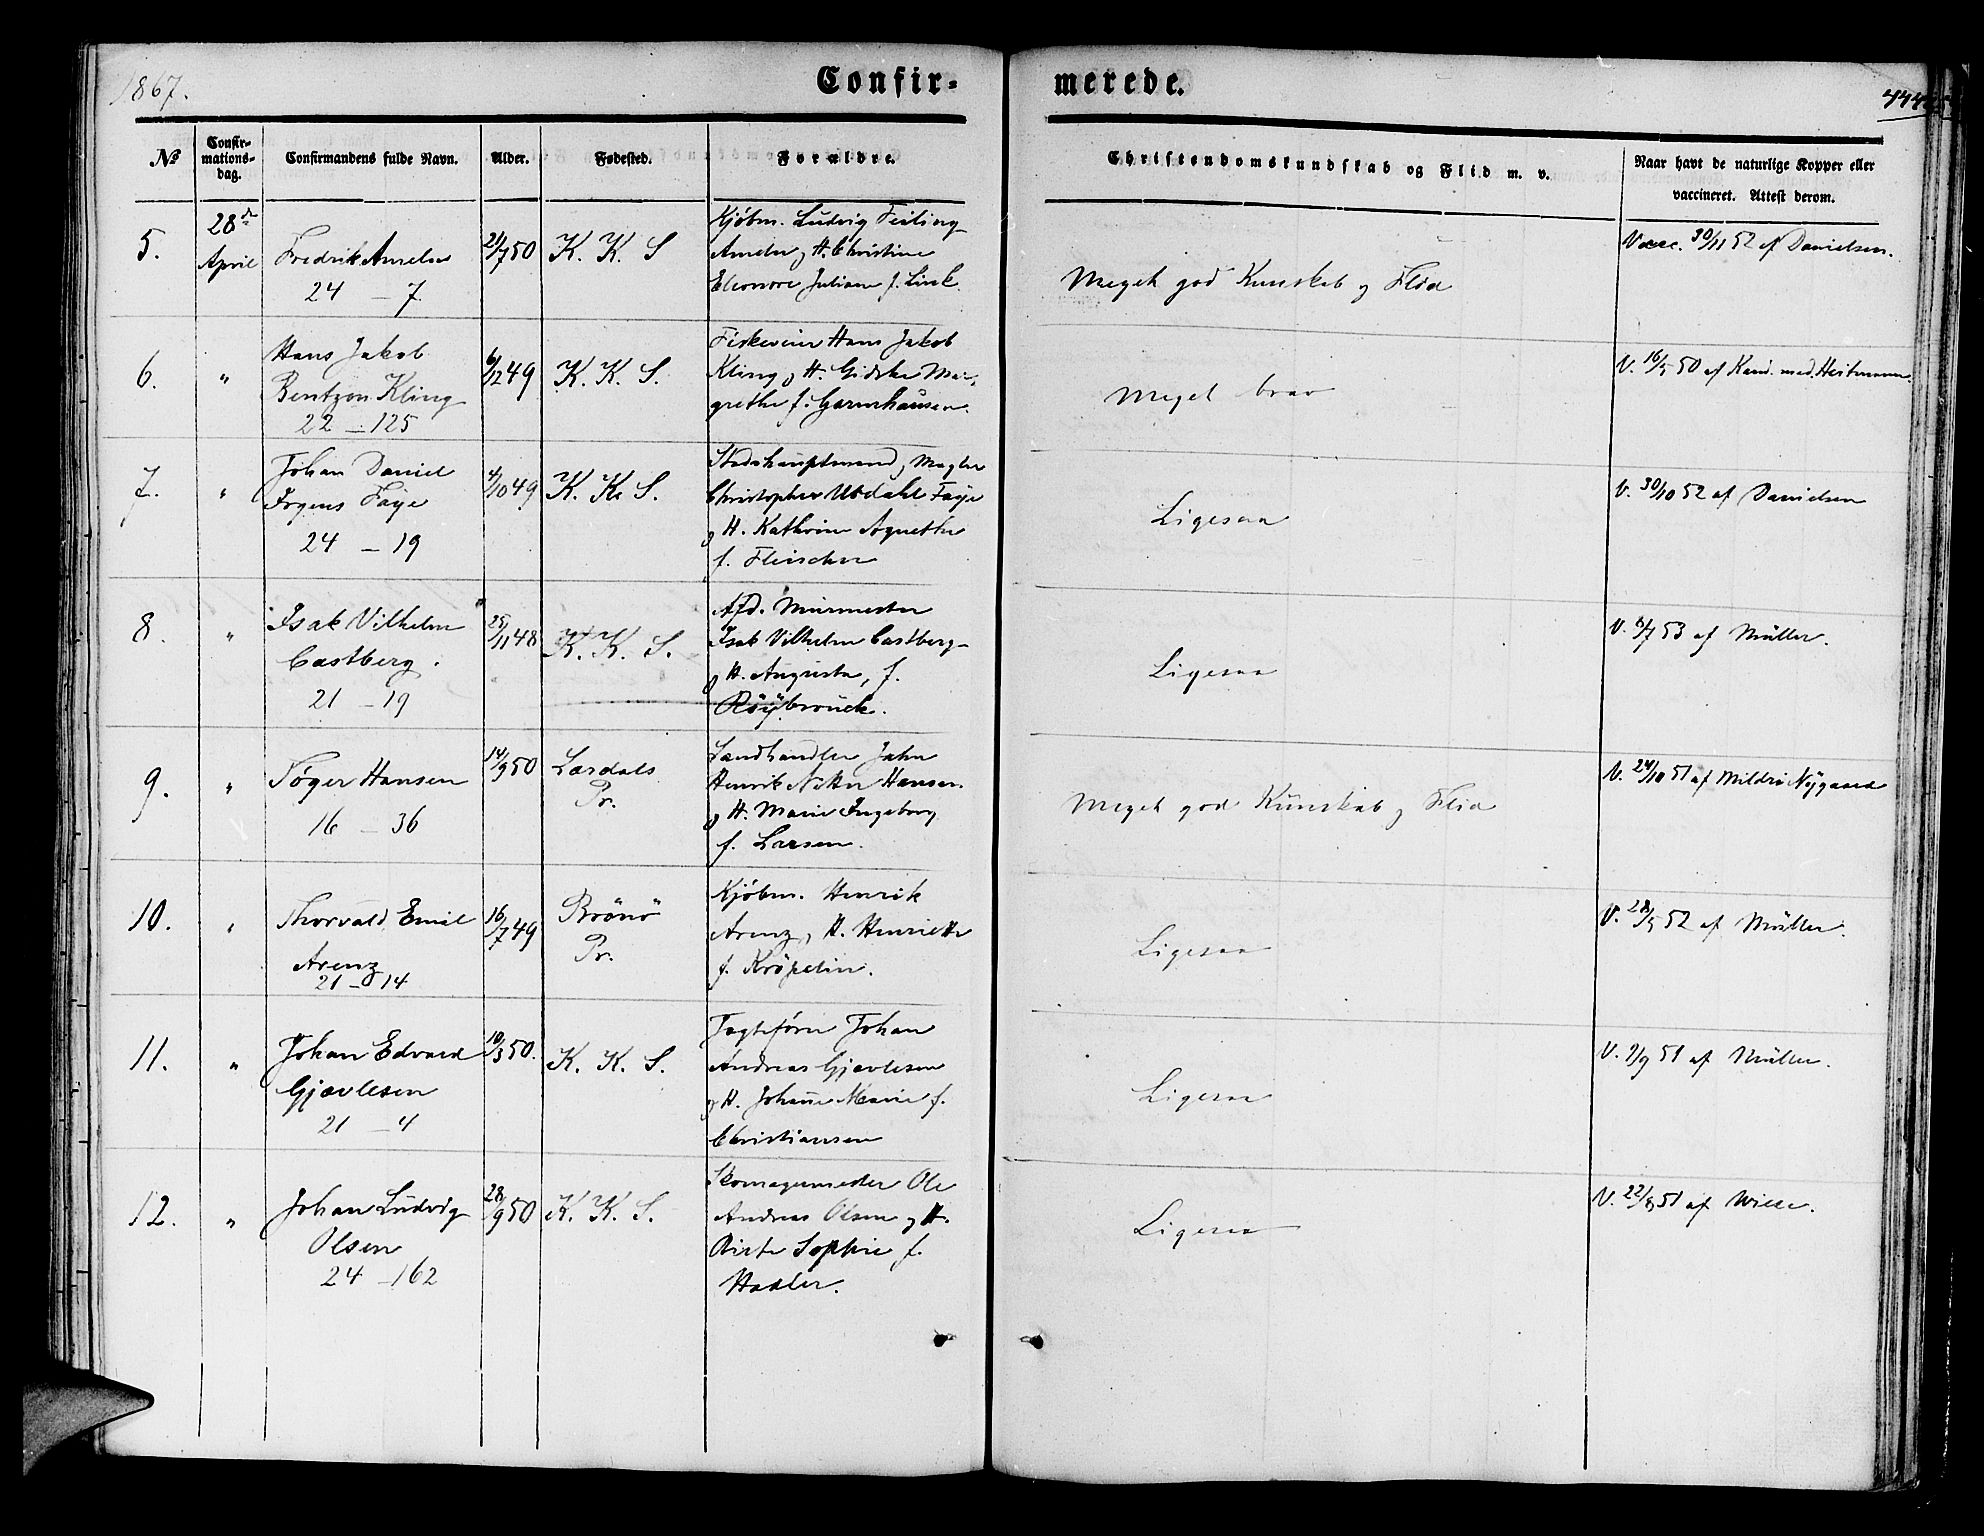 1867.
Confir-
merede.
444
No
Confir-
mations-
dag.
Confirmandens fulde Navn.
Alder.
Fødested.
Forældre.
Christendomskundskab og Flid m. v.
Naar havt de naturlige Kopper eller
vaccineret. Attest derom.
5.
28de
April
Fredrik Ameln
24 — 7
21/7 50
K. K. S
Kjøbm. Ludvig Feiling
Ameln og H. Christine
Eleonore Juliane f. Link.
Meget god Kunskab og Flid
Vacc. 30/11 52 af Danielsen.
6.
"
Hans Jakob
Bentzon Kling
22 — 125
6/12 49
K. K. S.
Fiskeveier Hans Jakob
Kling og H. Gidske Mar-
grethe f. Garmhausen.
Meget brav
V. 16/5 50 af Kand. med. Heitmann.
7.
"
Johan Daniel
Irgens Faye
24 — 19
4/10 49
K. K. S.
Stadshauptmand og Mægler
Christopher Urdahl Faye
og H. Kathrine Agnethe
f. Fleischer
Ligesaa
V. 30/10 52 af Danielsen
8.
"
Isak Vilhelm
Castberg.
21 — 19
25/11 48
K. K. S.
Afd. Muurmester
Isak Vilhelm Castberg
og H. Augusta, f.
Röÿbrouck.
Ligesaa
V. 8/7 53 af Müller.
9.
"
Tøger Hansen
16 — 36
14/9 50
Lærdals
Pr.
Landhandler Jahn
Henrik Nitter Hansen
og H. Marie Ingeborg
f. Larsen.
Meget god Kunskab og Flid
V. 24/10 51 af Mildri Nygaard
10.
"
Thorvald Emil
Arenz
21 — 14
16/7 49
Brønø
Pr.
Kjøbm. Henrik
Arenz, H. Henriette
f. Kröpelin.
Ligesaa
V. 28/5 52 af Müller.
11.
"
Johan Edvard
Gjævlesen
21 — 4
10/3 50.
K. K. S.
Jagtefører Johan
Andreas Gjævlesen
og H. Johanne Marie f.
Christiansen
Ligesaa
V. 9/9 51 af Müller.
12.
"
Johan Ludvig
Olsen
24 — 162
28/9 50
K. K. S.
Skomagermester Ole
Andreas Olsen og H.
Birte Sophie f.
Hadler.
Ligesaa
V. 22/8 51 af Wiese.